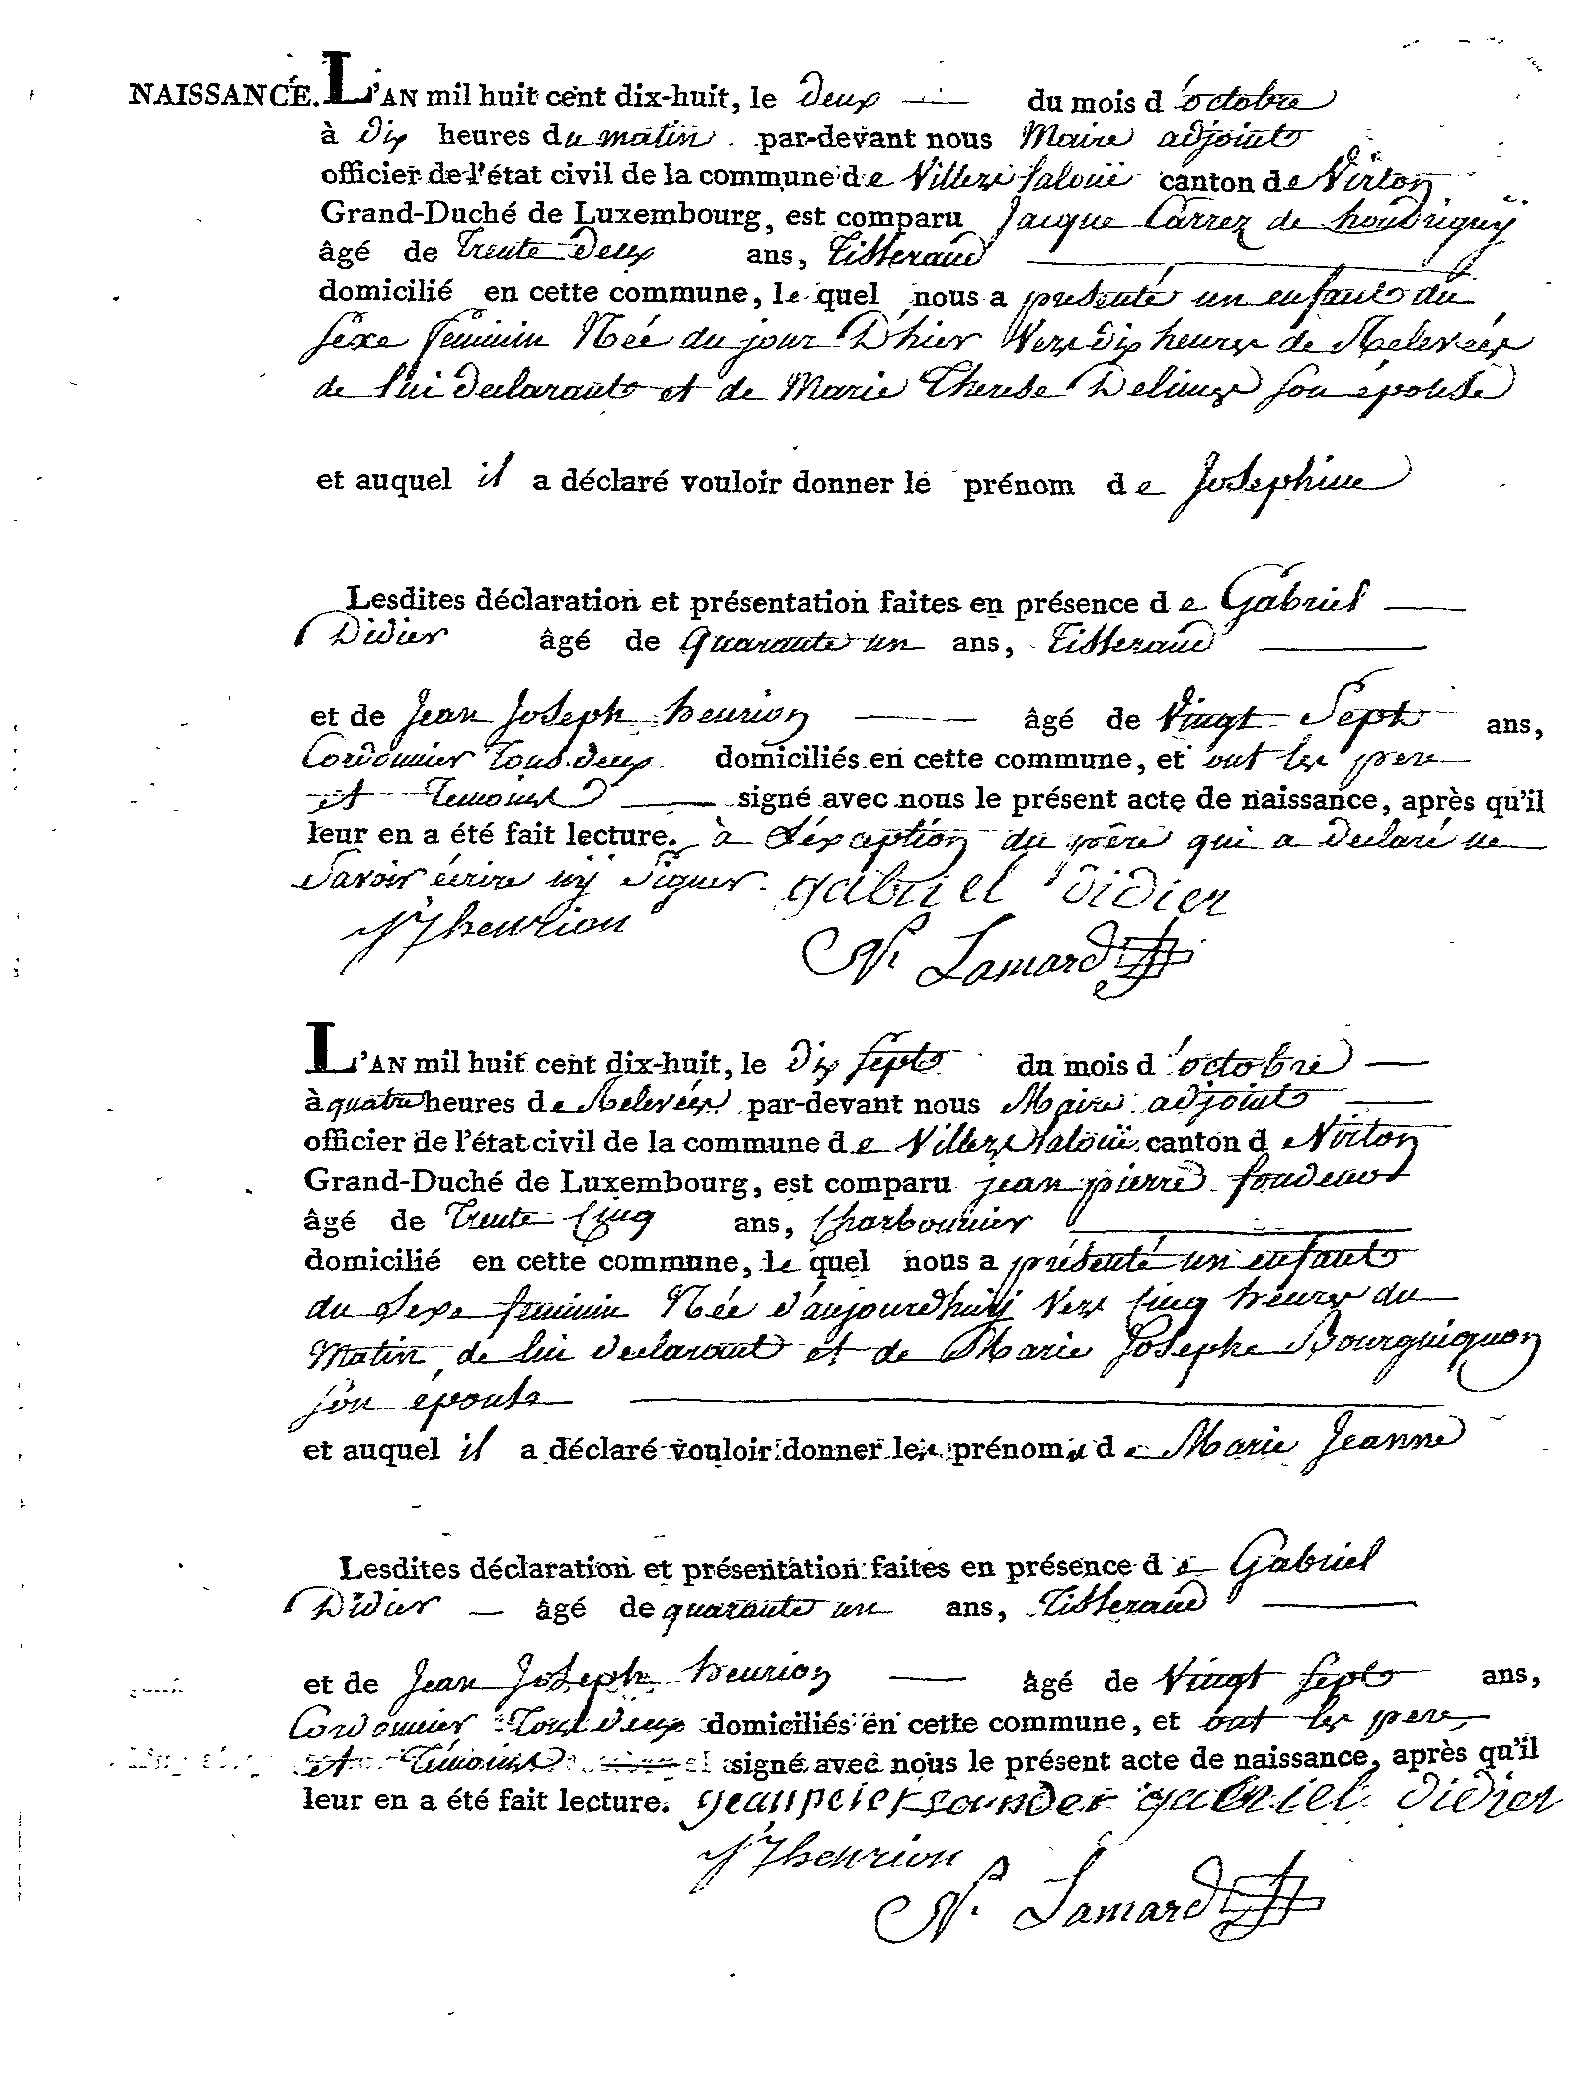 NAISSANCE. L'AN mil huit cent dix-huit, le deux du mois d'octobre
à dix heures du matin par-devant nous Maire adjoint
officier de l'état civil de la commune de Villers saloüé canton de Virton
Grand-Duché de Luxembourg, est comparu Jacque Carrez de houdrigny
âgé de trente deux ans, Tisserand
domicilié en cette commune, le quel nous a présenté un enfant du
sexe feminin Née du jour D'hier Vers dix heures de Relevées
de lui declarant et de Marie Therese son épouse
et auquel il a déclaré vouloir donner le prénom de Josephine
Lesdites déclaration et présentation faites en présence de Gabriel
Didier âgé de quarante un ans, Tisserand
et de Jean Joseph henrion âgé de Vingt Sept ans,
Cordonnier tous deux domiciliés en cette commune, et ont les pere
et Temoins signé avec nous le présent acte de naissance, après qu'il
leur en a été fait lecture. à L'éxception du père qui a declaré ne
Savoir écrire ny Signer. gabriel didier
JJ henrion
N. Lamard
L'AN mil huit cent dix-huit, le dix sept du mois d'octobre
à quatre heures de Relevées par-devant nous Maire adjoint
officier de l'état civil de la commune de Villers saloüé canton de Virton
Grand-Duché de Luxembourg, est comparu jean pierre
âgé de trente Cinq ans, Charbonnier
domicilié en cette commune, le quel nous a présenté un enfant
du Sexe feminin Née d'aujourdhuij Vers Cinq heures du
Matin de lui declarant et de Marie Josephe Bourguignon
son épouse
et auquel il a déclaré vouloir donner les prénoms de Marie Jeanne
Lesdites déclaration et présentation faites en présence de Gabriel
Didier âgé de quarante un ans, Tisserand
et de Jean Joseph henrion âgé de Vingt sept ans,
Cordonnier Tous deux domiciliés en cette commune, et ont les pere
et Témoins signé avec nous le présent acte de naissance, après qu'il
leur en a été fait lecture. gabriel didier
JJ henrion
N. Lamard